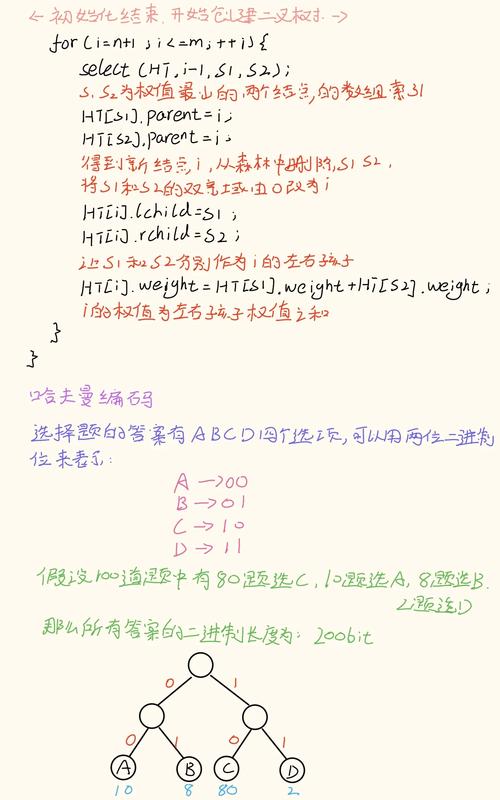 ← 初始化结束,开始创建二叉树 →
for (i=n+1 ; i<=m; ++i) {
select (HT, i-1, S1, S2);
S1 S2为权值最小的两个结点,的数组索引
HT[S1].parent=i;
HT[S2].parent=i;
得到新结点i,从森林中删除,S1 S2,
将S1和S2的双亲域由0改为i
HT[i].lchild=S1;
HT[i].rchild=S2;
让S1和S2分别作为i的左右孩子
HT[i].weight=HT[S1].weight+HT[S2].weight;
i的权值为左右孩子权值之和
}
}
哈夫曼编码
选择题的答案有ABCD四个选项,可以用两位二进制
位来表示:
A →00
B → 01
C → 10
D → 11
假设100道题中有80题选C,10题选A,8题选B.
2题选D
那么所有答案的二进制长度为: 200bit
0 1
0 1 0 1
A B C D
10 8 80 2